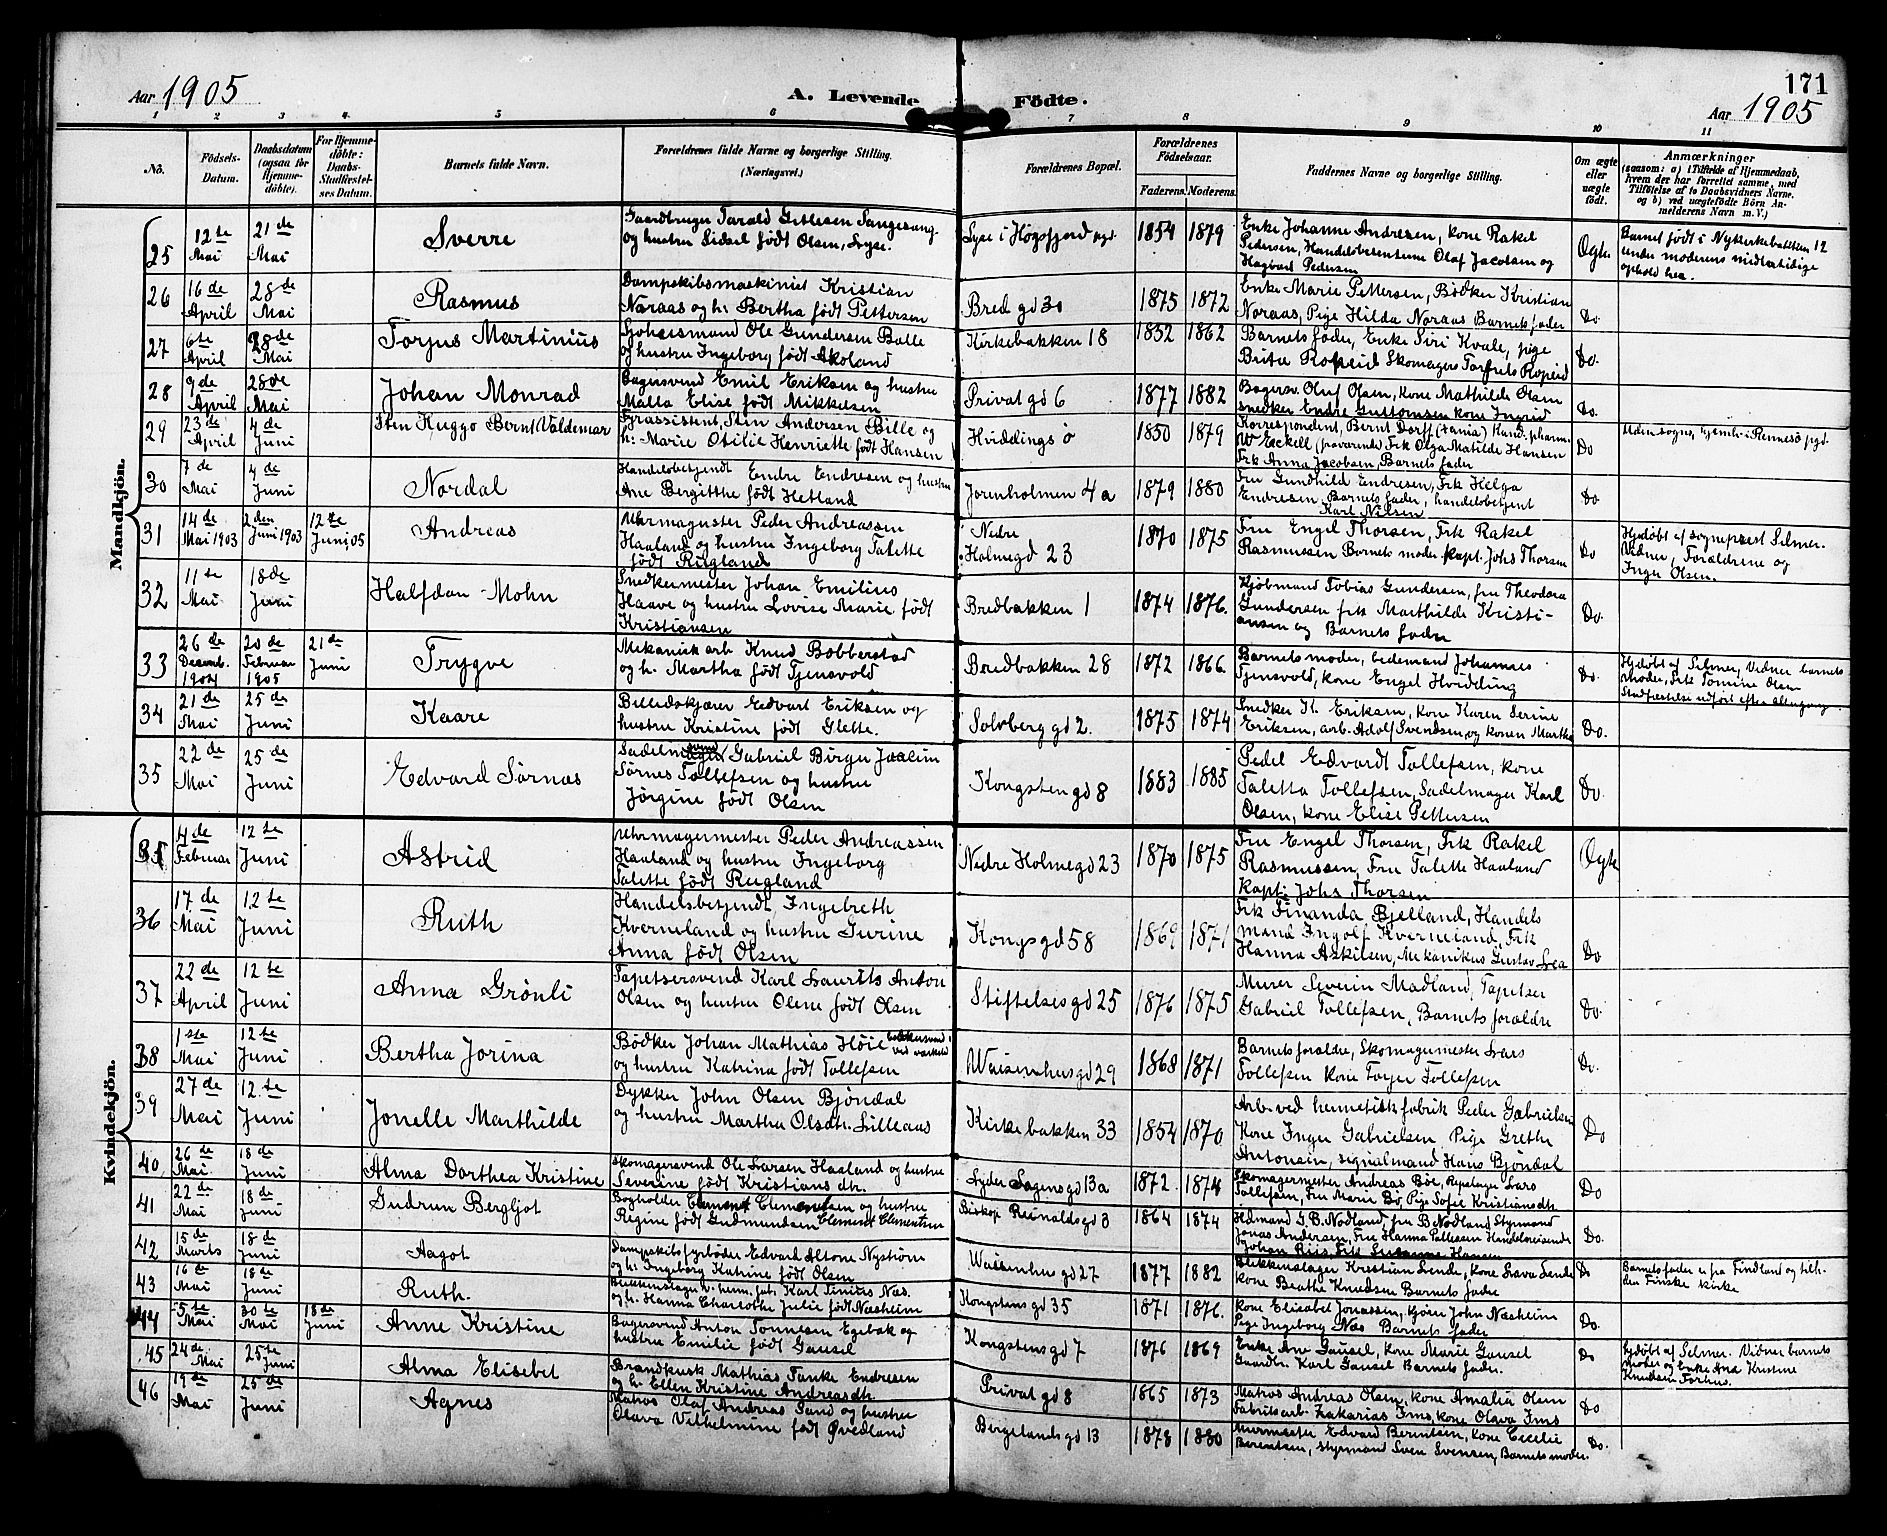 171
Aar 1905
A. Levende Fødte.
Aar 1905
1 2 3 4 5 6 7 8 9 10 11
No.
Fødsels-
Datum.
Daabsdatum
(ogsaa for
Hjemme-
døbte).
For Hjemme-
døbte:
Daabs-
Stadfæstel-
ses Datum.
Barnets fulde Navn.
Forældrenes fulde Navne og borgerlige Stilling.
(Næringsvei.)
Forældrenes Bopæl.
Forældrenes
Fødselsaar.
Faderens. Moderens.
Faddernes Navne og borgerlige Stilling.
Om ægte
eller
uægte
født.
Anmærkninger
(saasom: a) i Tilfælde af Hjemmedaab,
hvem der har forrettet samme, med
Tilføielse af to Daabsvidners Navne,
og b) ved uægtefødte Børn An-
melderens Navn m. V.)
Mandkjøn.
25 12te Mai 21de Mai Sverre
Gaardbruger Tarald Gitlesen
og hustru Sidsel født Olsen, Lyse.
Lyse i Høgsfjord 1854 1879
Enke Johanne Andresen, kone Rakel
Pedersen, Handelsbetjentene Olaf Jacobsen og
Hagbart Pedersen
Ægte
Barnet født i Nykirkebakken 12
under moderens midlertidige
ophold her.
26 16de April 28de Mai Rasmus
Dampskibsmaskinist Kristian
Noraas og h. Bertha født Pettersen
Bred gd 30 1875 1872
Enke Marie Pettersen, Bødker Kristian
Noraas, Pige Hilda Noraas Barnets fader
Do.
27 6te April 28de Mai Torjus Martinius
Ole Gundersen Balle
og hustru Ingeborg født Skoland
Kirkebakken 18 1852 1862
Barnets fader, Enke Siri Kvale, pige
Brita Ropeid Skomager Ropeid
Do.
28 9de April 28de Mai Johan Monrad
Bagersvend Emil Eriksen og hustru
Malla Elise født Mikkelsen
Privat gd 6 1877 1882
Bagersv. Oluf Olsen, kone Mathilde Olsen
snedker Endre Guttormsen kone Ingrid
Do.
29 23de April 4de Juni Sten Huggo Bernt Valdemar
Fyrassistent, Sten Andersen Bille og
h. Marie Otilie Henriette født Hansen
Hviddingsø 1850 1879
Korrespondent, Bernt Dorff
W Eckell (fraværende) Frk Olga Matilde Hansen
Frk Anna Jacobsen, Barnets fader
Do
Udensogns, hjemh. i Rennesø pgd.
30 7de Mai 4de Juni Nordal
Handelsbetjendt Endre Endresen og hustru
Ane Bergitthe født Hetland
Jorenholmen 4a 1879 1880
Fru Gundhild Endresen, Frk Helga
Endresen, Barnets fader, handelsbetjent
Karl Nilsen
Do.
31 14de Mai 1903 2den Juni 1903 12te Juni, 05 Andreas
Uhrmagester Peder Andreassen
Haaland og hustru Ingeborg Talette
født Rugland
Nedre
Holmegd 23 1870 1875
Fru Engel Thorsen, Frk Rakel
Rasmussen Barnets moder kapt. Johs Thorsen
Do
Hjdøbt af sogneprest Selmer.
Vidner, Forældrene og
Inger Olsen.
32 11te Mai 18de Juni Halfdan Mohn
Snedkermester Johan Emilius
Haave og hustru Lovise Marie født
Kristiansen
Bredbakken 1 1874 1876.
Kjøbmand Tobias Gundersen, fru Theodora
Gundersen frk Marthilde Kristi-
ansen og Barnets fader
Do.
33 26de Desemb. 1904 20de Februar 1905 21de Juni Trygve
Mekanisk arb Knud Bobberstad
og h. Martha født Tjensvold
Bredbakken 28 1872 1866.
Barnets moder, bedemand Johannes
Tjensvold, kone Engel Hvidding
Do.
Hjdøbt af Selmer, Vidner barnets
moder, Frk Tomine Olsen
Stadfæstelse udført efter altergang.
34 21de Mai 25de Juni Kaare
Billedskjærer Edvart Eriksen og
hustru Kristine født Glette.
Solvberg gd 2. 1875 1874
Snedker K. Eriksen, kone Karen Serine
Eriksen, arb. Adolf Svendsen, og konen Martha
Do.
35 22de Mai 25de Juni Edvard Sørnas
Gabriel Børger Joalim
Sørnes Tollefsen og hustru
Jørgine født Olsen
Kongsten gd 8 1883 1885
Pedel Edvardt Tollefsen, kone
Taletta Tollefsen, Sadelmager Karl
Olsen, kone Elise Pettersen
Do.
Kvindekjøn.
35 4de Februar 12te Juni Astrid
Uhrmagermester Peder Andreassen
Haaland og hustru Ingeborg
Talette født Rugland
Nedre Holmegd 23 1870 1875
Fru Engel Thorsen, Frk Rakel
Rasmussen, Fru Talette Haaland
kapt. Johs Thorsen
Ægte
36 17de Mai 12te Juni Ruth
Handelsbetjendt, Ingebreth
Kverneland og hustru Gurine
Anna født Olsen
Kongsgd 58 1869 1871
Frk Finanda Bjelland, Handels
mand Ingolf Kverneland, Frk
Hanna Askilsen, Mekanikus Gustav Lea
Do
37 22de April 12te Juni Anna Grønli
Tapetsersvend Karl Laurits Anton
Olsen og hustru Oline født Olsen
Stiftelsesgd 25 1876 1875
Murer Severin Madland, Tapetser
Gabriel Tollefsen, Barnets forældre
Do.
38 1ste Mai 12te Juni Bertha Jorina
Bødker Johan Mathias Høie
og hustru Katrina født Tollefsen
Waisenhusgd 29 1868 1871
Barnets forældre, Skomagermester Lars
Tollefsen kone Torger Tollefsen
Do.
39 27de Mai 12te Juni Jonelle Marthilde
Dykker John Olsen Bjøndal
og hustru Martha Olsdtr. Lilleaas
Kirkebakken 33 1854 1870
Arb. ved hermetisk fabrik Peder Gabrielsen
Kone Inger Gabrielsen, Pige Grethe
Antonsen, signalmand Hans Bjøndal
Do
40 26de Mai 18de Juni Alma Dorthea Kristine
Skomagersvend Ole Larsen Haaland og hustru
Severine født Kristiansdtr.
Lyder Sagensgd 13a 1872. 1874
Skomagermester Andreas Bøe, Repslager Lars
Tollefsen, Fru Marie Bø, Pige Sofie Kristiansdtr
Do
41 22de Mai 18de Juni Gudrun Bergljot
Bogholder Clement Clementsen og hustru
Regine født Gudmundsen Clement Clementsen
Biskop Reinaldsgd 3 1864 1874
G. B. Nodland, fru B Nodland, Styrmand
Jonas Andersen, Fru Hanna Tollessen Handelsreisende
Johan Riis, Frk Susanne Hansen
Do.
42 15de Marts 18de Juni Aagot
Dampskibsfyrbøder Edvard Altone Nystrøm
og h. Ingeborg Katrine født Olsen
Waisenhusgd 27 1877 1882
Blikkenslager Kristian Lende, kone Lava Lende
kone Beathe Knudsen Barnets fader
Do
Barnets fader er fra Findland og tilh.
den Finske kirke
43 16de Mai 18de Juni Ruth.
Blikkenslager Karl Sinius Næs.
og h. Hanna Charlothe Julie født Næsheim
Kongstensgd 35 1871 1876.
Kone Elisabet Jonassen, kjører John Næsheim
Pige Ingeborg Næs Barnets fader
Do.
44 5te Mai 30te Mai 18de Juni Anne Kristine
Bagersvend Anton Tonnesen Egebak og
hustru Emilie født Gausel
Kongstensgd 7 1876 1869
Enke Ane Gausel, kone Marie Gausel
Gaardbr. Karl Gausel Barnets fader.
Do
Hjdøbt af Selmer. Vidner barnets
moder og Enke Ana Kristine
Knudsen Forhus.
45 24de Mai 25te Juni Alma Elisebet
Brandkusk Mathias Tanke Endresen
og h. Ellen Kristine Andreasdtr.
Privat gd 8 1865 1873
Matros Andreas Olsen, kone Amalia Olsen
Fabrikarb. Zakarias Ims, kone Olava Ims
Do
46 19de Mai 25de Juni Agnes
Matros Olaf Andreas Sand og hustru
Olava Vilhelmine født Øvedland
Bergelandsgd 13 1878 1880
Murmester Edvard Berntsen, kone Cecilie
Berentsen, styrmand Sven Svensen, Barnets moder.
Do.